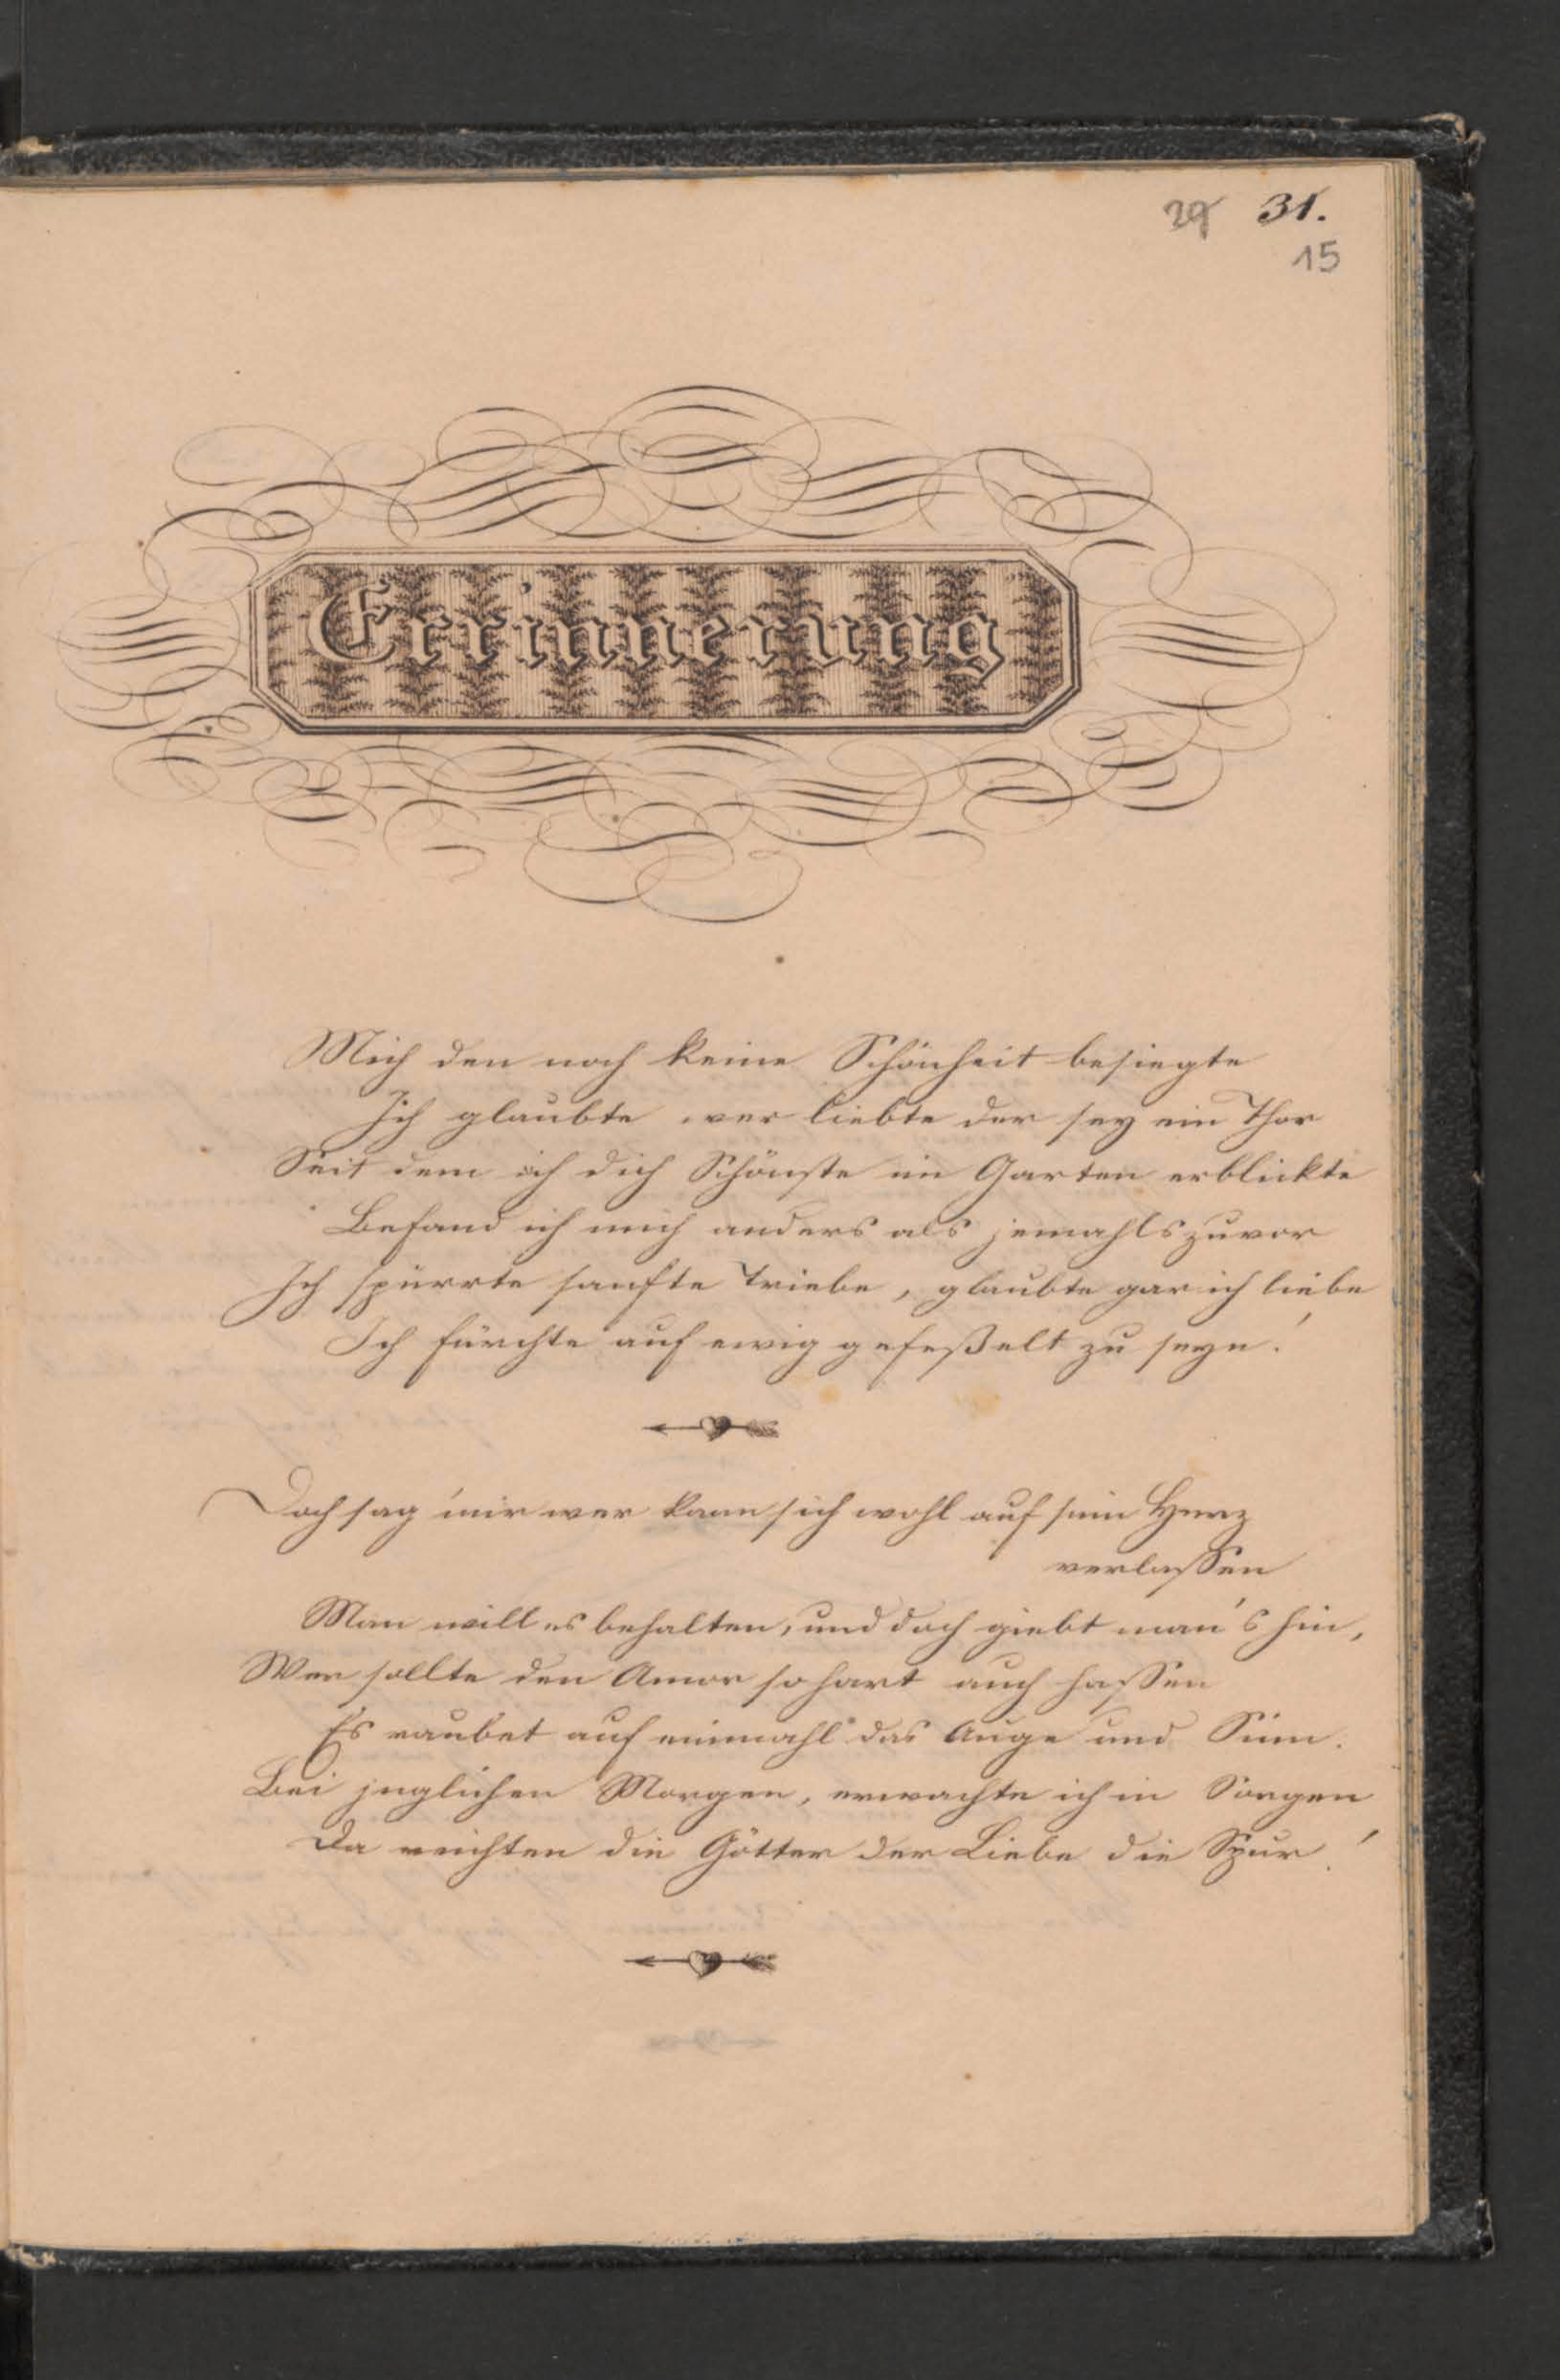 29 31.
15
Errinnerung
Mich den noch keine Schönheit besiegte
Ich glaubte wer liebte der sey ein Thor
Seit dem ich dich Schönste im Garten erblickte
Befand ich mich anders als jemahls zuvor
Ich spürrte sanfte Triebe, glaubte gar ich liebe
Ich fürchte auf ewig gefeßelt zu seyn!
Doch sag' mir wer kann sich wohl auf sein Herz
verlassen
Man will es behalten, und doch giebt man's hin,
Wer sollte den Amor so hart auch hassen
Es raubet auf einmahl das Auge und Sinn.
Bei jeglichen Morgen, erwachte ich in Sorgen
Da reichten die Götter der Liebe die Spur!